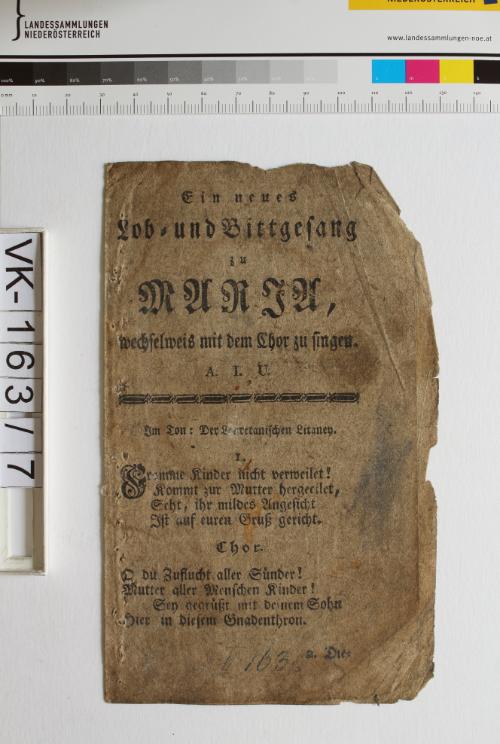 LANDESSAMMLUNGEN
NIEDERÖSTERREICH
NIEDERÖSTERREICH
www.landessammlungen-noe.at
VK-163/7
Ein neues
Lob- und Bittgesang
zu
MARJA,
wechselweis mit dem Chor zu singen.
A. I. U.
Im Ton: Der Lauretanischen Litaney.
1.
Fromme Kinder nicht verweilet!
Kommt zur Mutter hergeeilet,
Seht, ihr mildes Angesicht
Ist auf euren Gruß gericht.
Chor.
O du Zuflucht aller Sünder!
Mutter aller Menschen Kinder!
Sey gegrüßt mit deinem Sohn
Hier in diesem Gnadenthron.
163
2. Die-